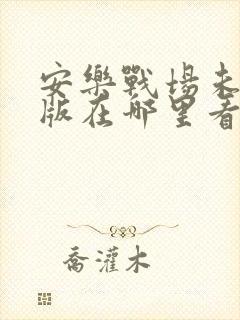 安樂戰場未
版在哪里看
喬灌木